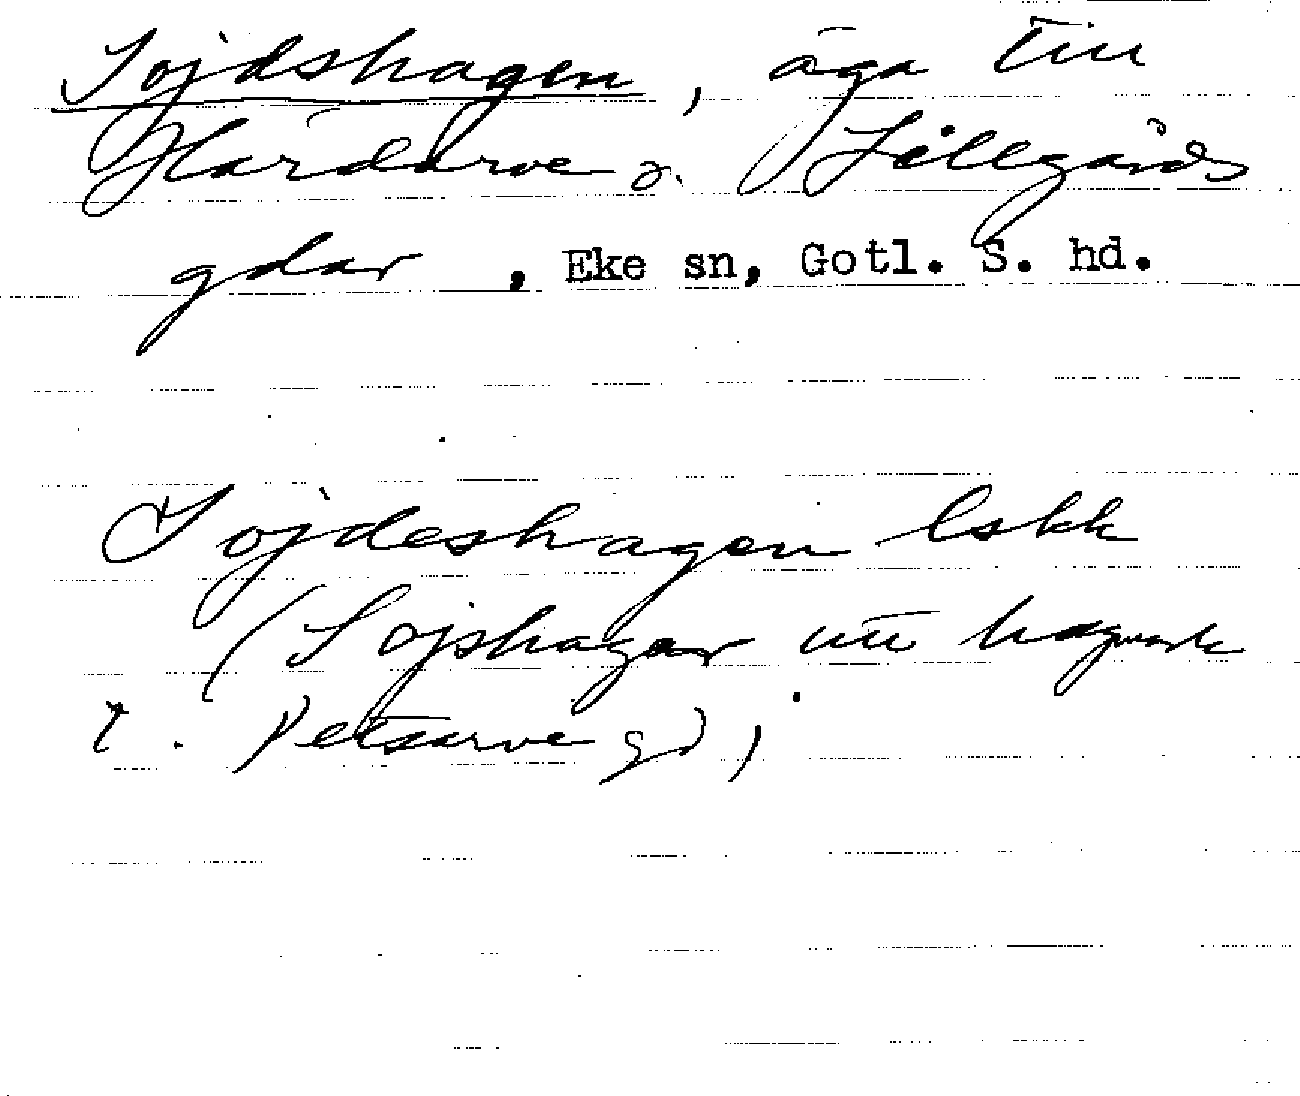 Sojdshagen, äga till
Hardarve o. Lillegårds
gdar, Eke sn, Gotl. S. hd.
Sojdeshagen lskk
(Sojshagar till hagmark
t. Petsarve gd),